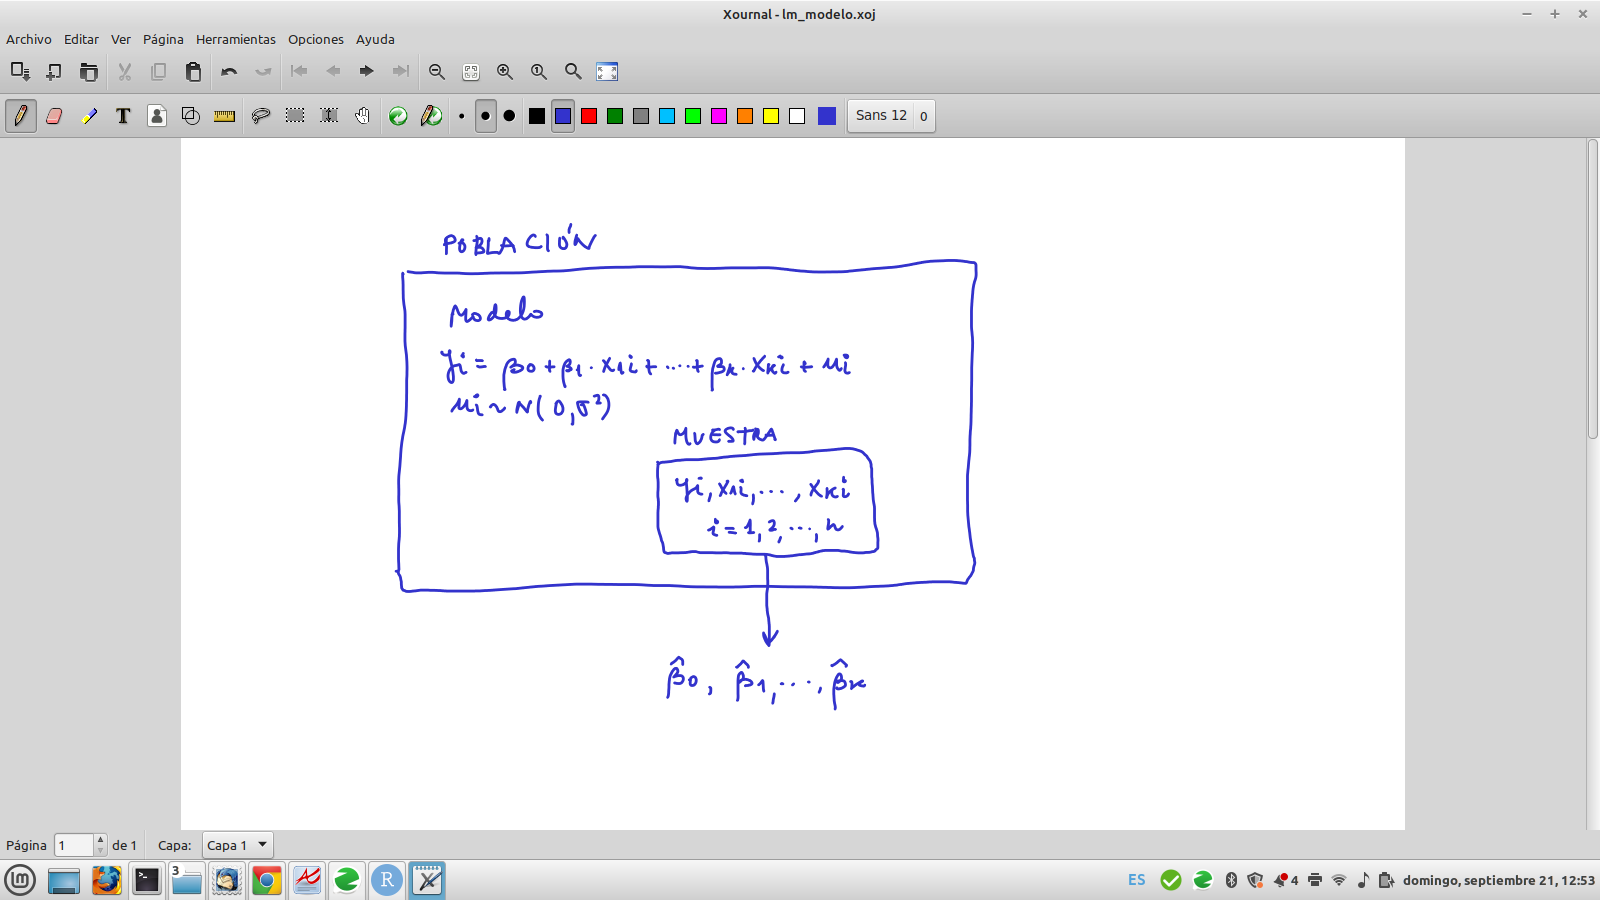 Xournal - lm_modelo.xoj
Archivo Editar Ver Página Herramientas Opciones Ayuda
Sans 12 0
POBLACIÓN
Modelo
yi = β0 + β1 · X1i + ··· + βk · Xki + ui
ui ~ N(0, σ²)
MUESTRA
yi, X1i, ···, Xki
i = 1, 2, ···, n
β̂0, β̂1, ···, β̂k
Página 1 de 1 Capa: Capa 1
3 R ES 4 domingo, septiembre 21, 12:53